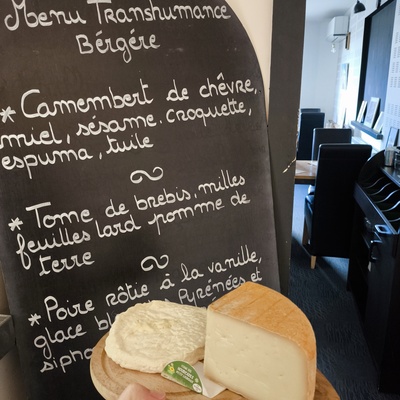 Menu Transhumance
Bérgére
* Camembert de chêvre,
miel, sésame, croquette,
espuma, tuile
* Tome de brebis, milles
feuilles lard pomme de
terre
* Poire rôtie à la vanille,
glace Pyrénées et